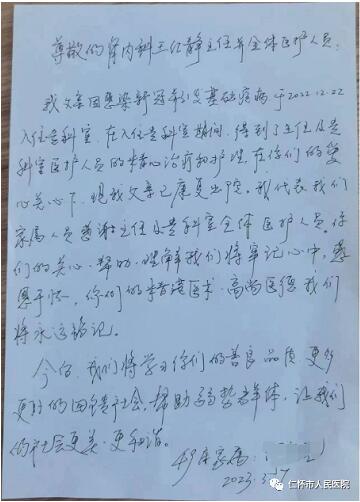 尊敬的肾内科王仁静主任并全体医护人员:
我父亲因感染新冠引发基础疾病于2022.12.22
入住贵科室,在入住贵科室期间,得到了主任及贵
科室医护人员的精心治疗和护理,在你们的爱
心关心下,现我父亲已康复出院。我代表我们
家属人员感谢主任及贵科室全体医护人员,你
们的关心、帮助、我们将牢记心中,感
恩于怀,你们的精湛医术、高尚医德我们
将永远铭记。
今后,我们将学习你们的善良品质,更多
更好的回馈社会,帮助弱势群体,让我们
的社会更美、更和谐。
家属:
2023.3.17
仁怀市人民医院